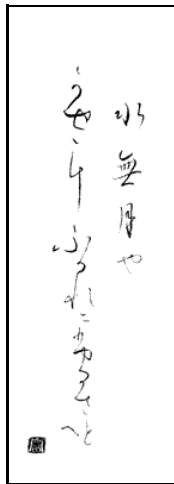 水無月や
かせにふかれにふるさとへ